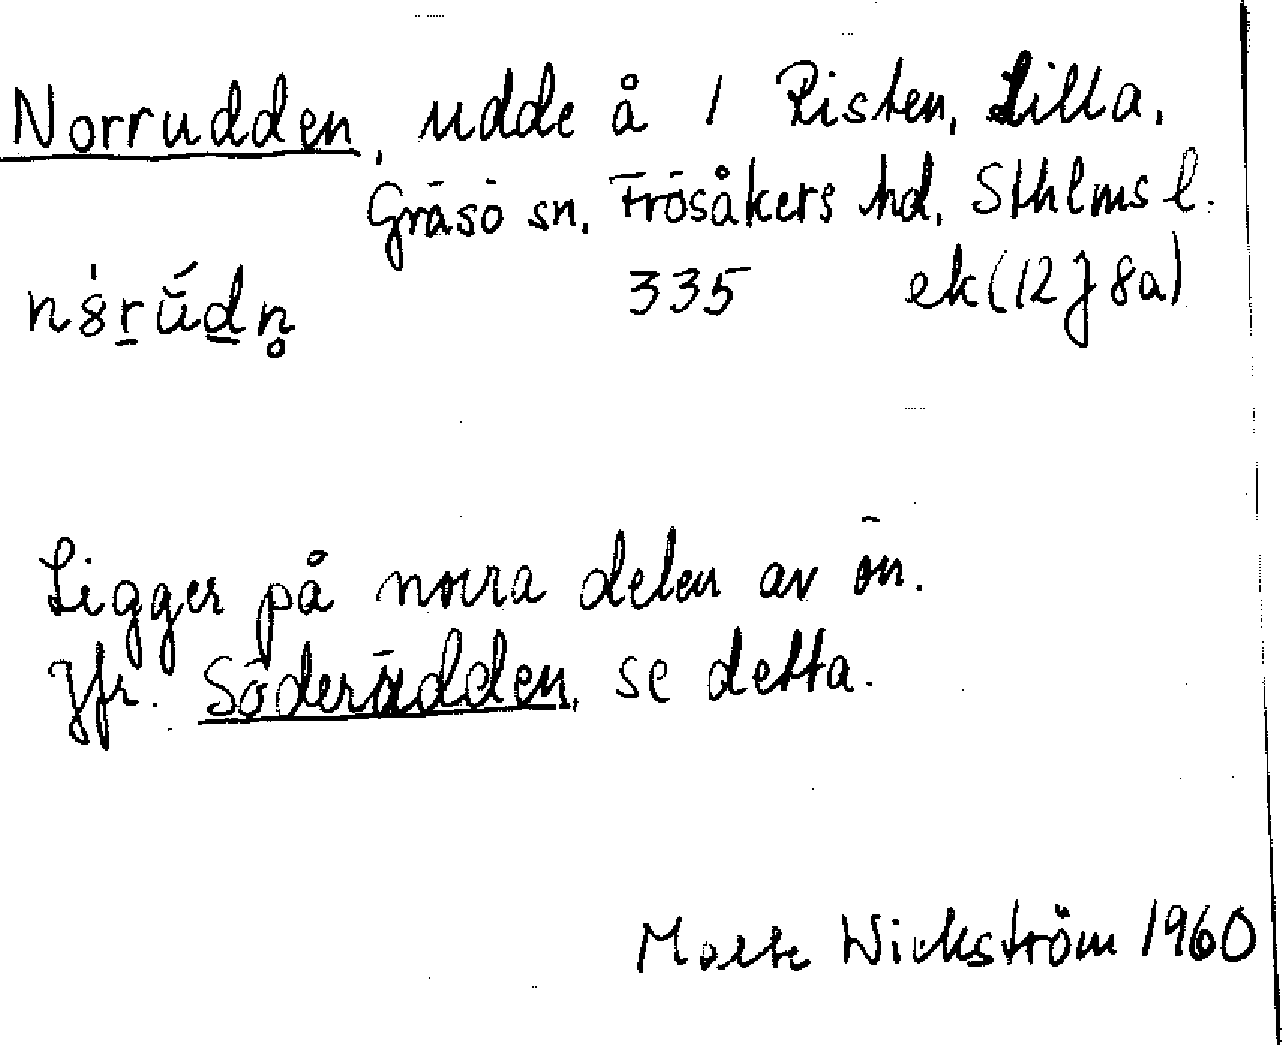 Norrudden, udde å 1 Risten, Lilla,
Gräsö sn, Frösåkers hd, Sthlms l.
335 ek (12 J 8a)
Ligger på norra delen av ön.
Jfr. Söderudden, se detta.
Wickström 1960